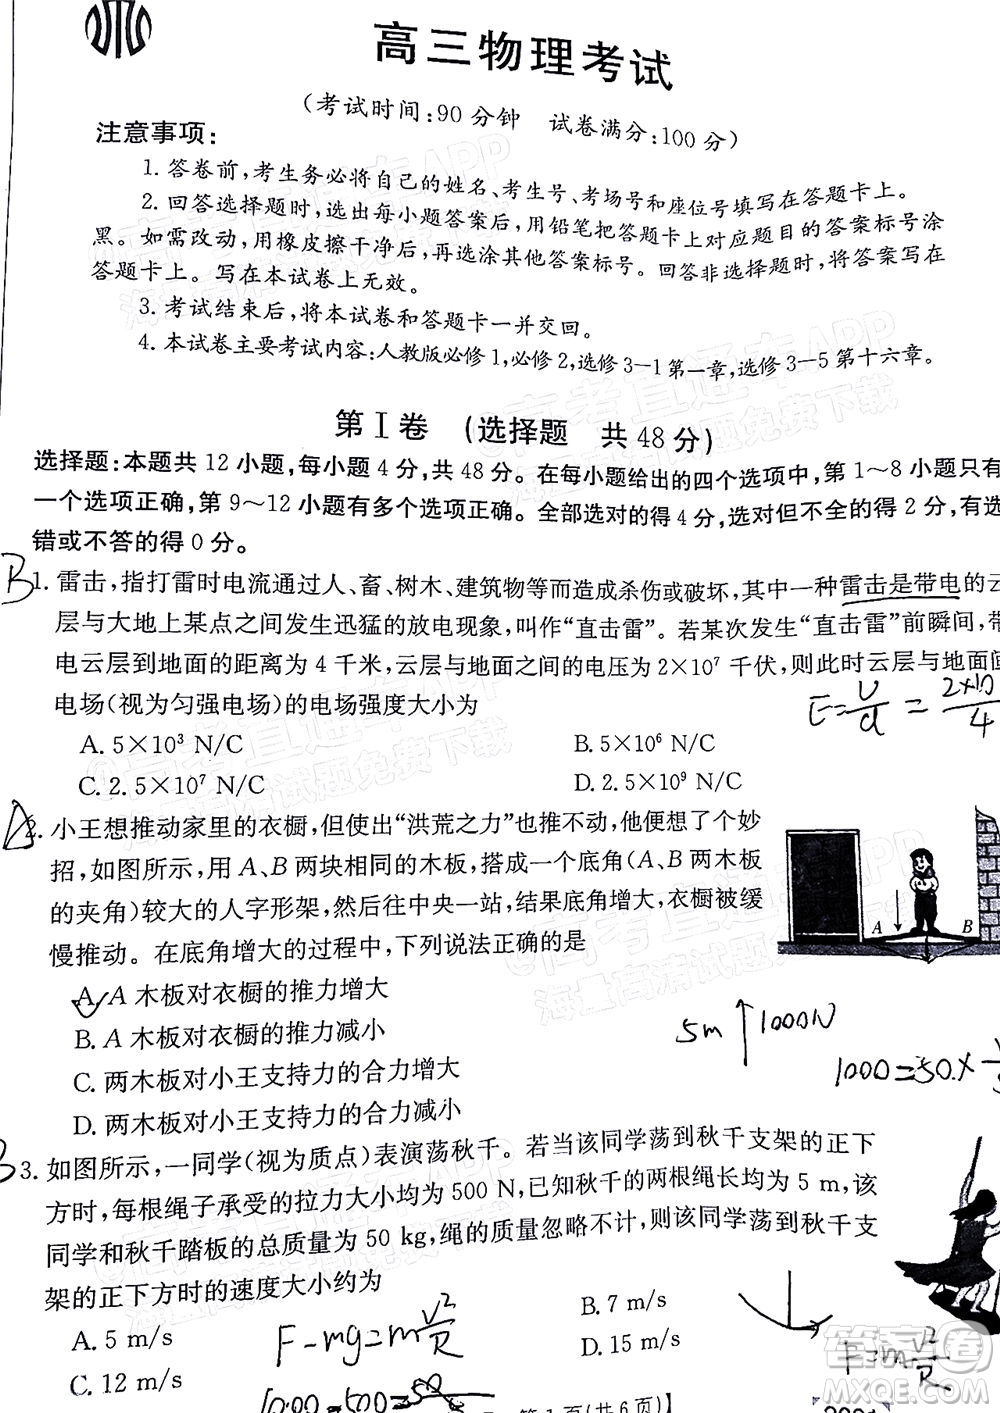 高三物理考试
(考试时间:90分钟 试卷满分:100分)
注意事项:
1. 答卷前,考生务必将自己的姓名、考生号、考场号和座位号填写在答题卡上。
2. 回答选择题时,选出每小题答案后,用铅笔把答题卡上对应题目的答案标号涂
黑。如需改动,用橡皮擦干净后,再选涂其他答案标号。回答非选择题时,将答案写在
答题卡上。写在本试卷上无效。
3. 考试结束后,将本试卷和答题卡一并交回。
4. 本试卷主要考试内容:人教版必修1,必修2,选修3-1第一章,选修3-5第十六章。
第Ⅰ卷 (选择题 共48分)
选择题:本题共12小题,每小题4分,共48分。在每小题给出的四个选项中,第1~8小题只有
一个选项正确,第9~12小题有多个选项正确。全部选对的得4分,选对但不全的得2分,有选
错或不答的得0分。
B 1. 雷击,指打雷时电流通过人、畜、树木、建筑物等而造成杀伤或破坏,其中一种雷击是带电的云
层与大地上某点之间发生迅猛的放电现象,叫作“直击雷”。若某次发生“直击雷”前瞬间,带
电云层到地面的距离为4千米,云层与地面之间的电压为2×10⁷千伏,则此时云层与地面间
电场(视为匀强电场)的电场强度大小为
E=U/d=2×10/4
A. 5×10³ N/C B. 5×10⁶ N/C
C. 2.5×10⁷ N/C D. 2.5×10⁹ N/C
2. 小王想推动家里的衣橱,但使出“洪荒之力”也推不动,他便想了个妙
招,如图所示,用A、B两块相同的木板,搭成一个底角(A、B两木板
的夹角)较大的人字形架,然后往中央一站,结果底角增大,衣橱被缓
慢推动。在底角增大的过程中,下列说法正确的是
A B
A. A木板对衣橱的推力增大
B. A木板对衣橱的推力减小
C. 两木板对小王支持力的合力增大
D. 两木板对小王支持力的合力减小
5m 1000N
1000=50×
B 3. 如图所示,一同学(视为质点)表演荡秋千。若当该同学荡到秋千支架的正下
方时,每根绳子承受的拉力大小均为500 N,已知秋千的两根绳长均为5 m,该
同学和秋千踏板的总质量为50 kg,绳的质量忽略不计,则该同学荡到秋千支
架的正下方时的速度大小约为
A. 5 m/s B. 7 m/s
C. 12 m/s D. 15 m/s
F-mg=mv²/R
F=mv²/R
1000-500=50
第1页(共6页)】
答案圈